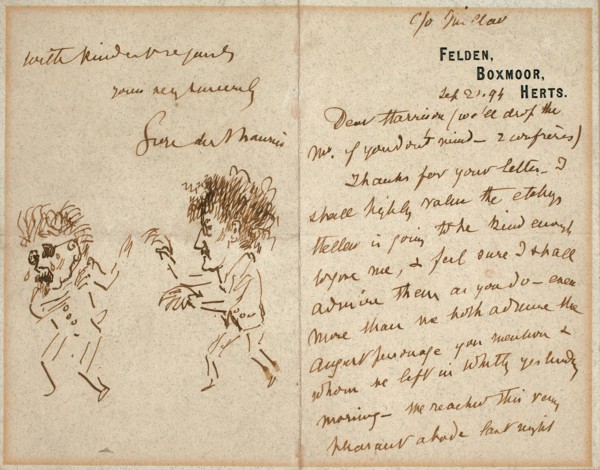 c/o
FELDEN,
BOXMOOR,
HERTS.
Sep 21. 94
Dear Harrison (we'll drop the
Mr. if you don't mind — 2 confreres)
Thanks for your letter — I
shall highly value the etchings
is going to be kind enough
to give me, & feel sure I shall
admire them as you do — even
more than we both admire the
august personage you mention &
whom we left in Whitby yesterday
morning — we reached this very
pleasant abode last night
with kindest regards
yours very sincerely
George du Maurier